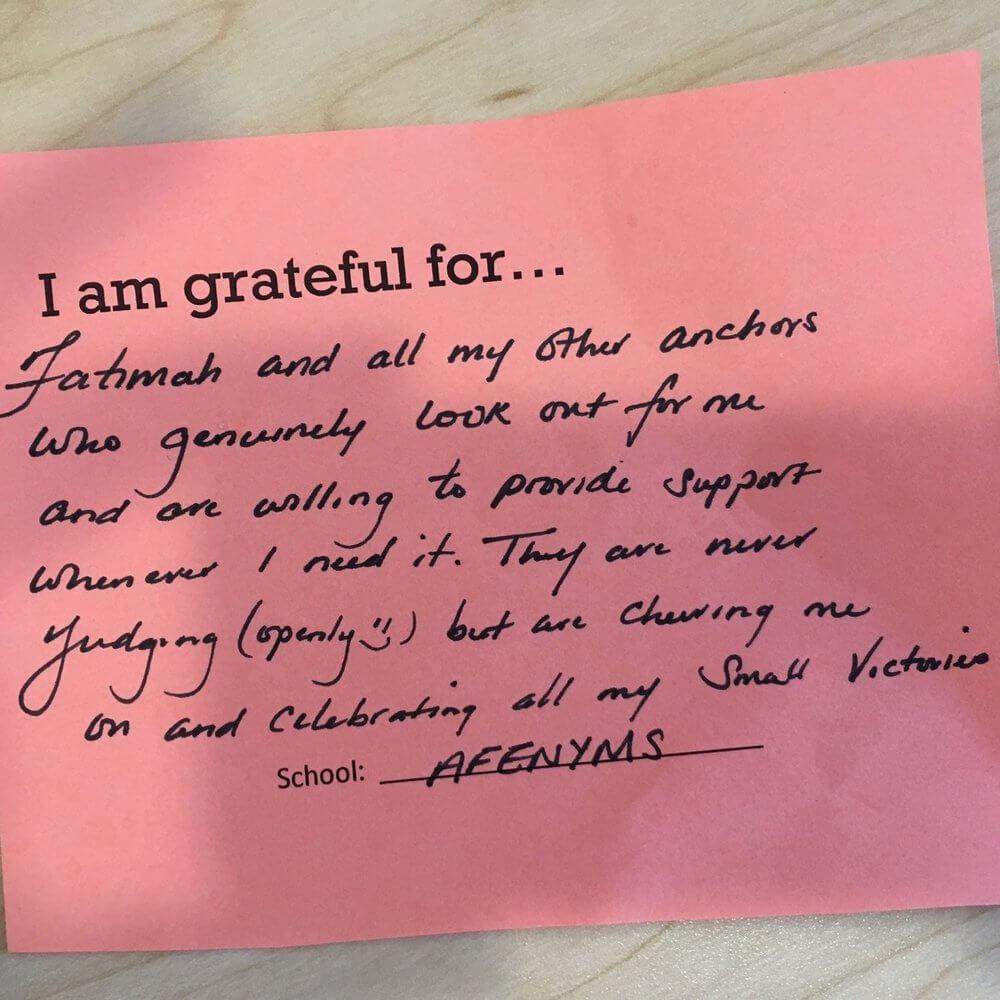 I am grateful for...
Fatimah and all my other anchors
who genuinely look out for me
and are willing to provide support
whenever I need it. They are never
judging (openly ) but are cheering me
on and celebrating all my small victories
School: AFENYMS